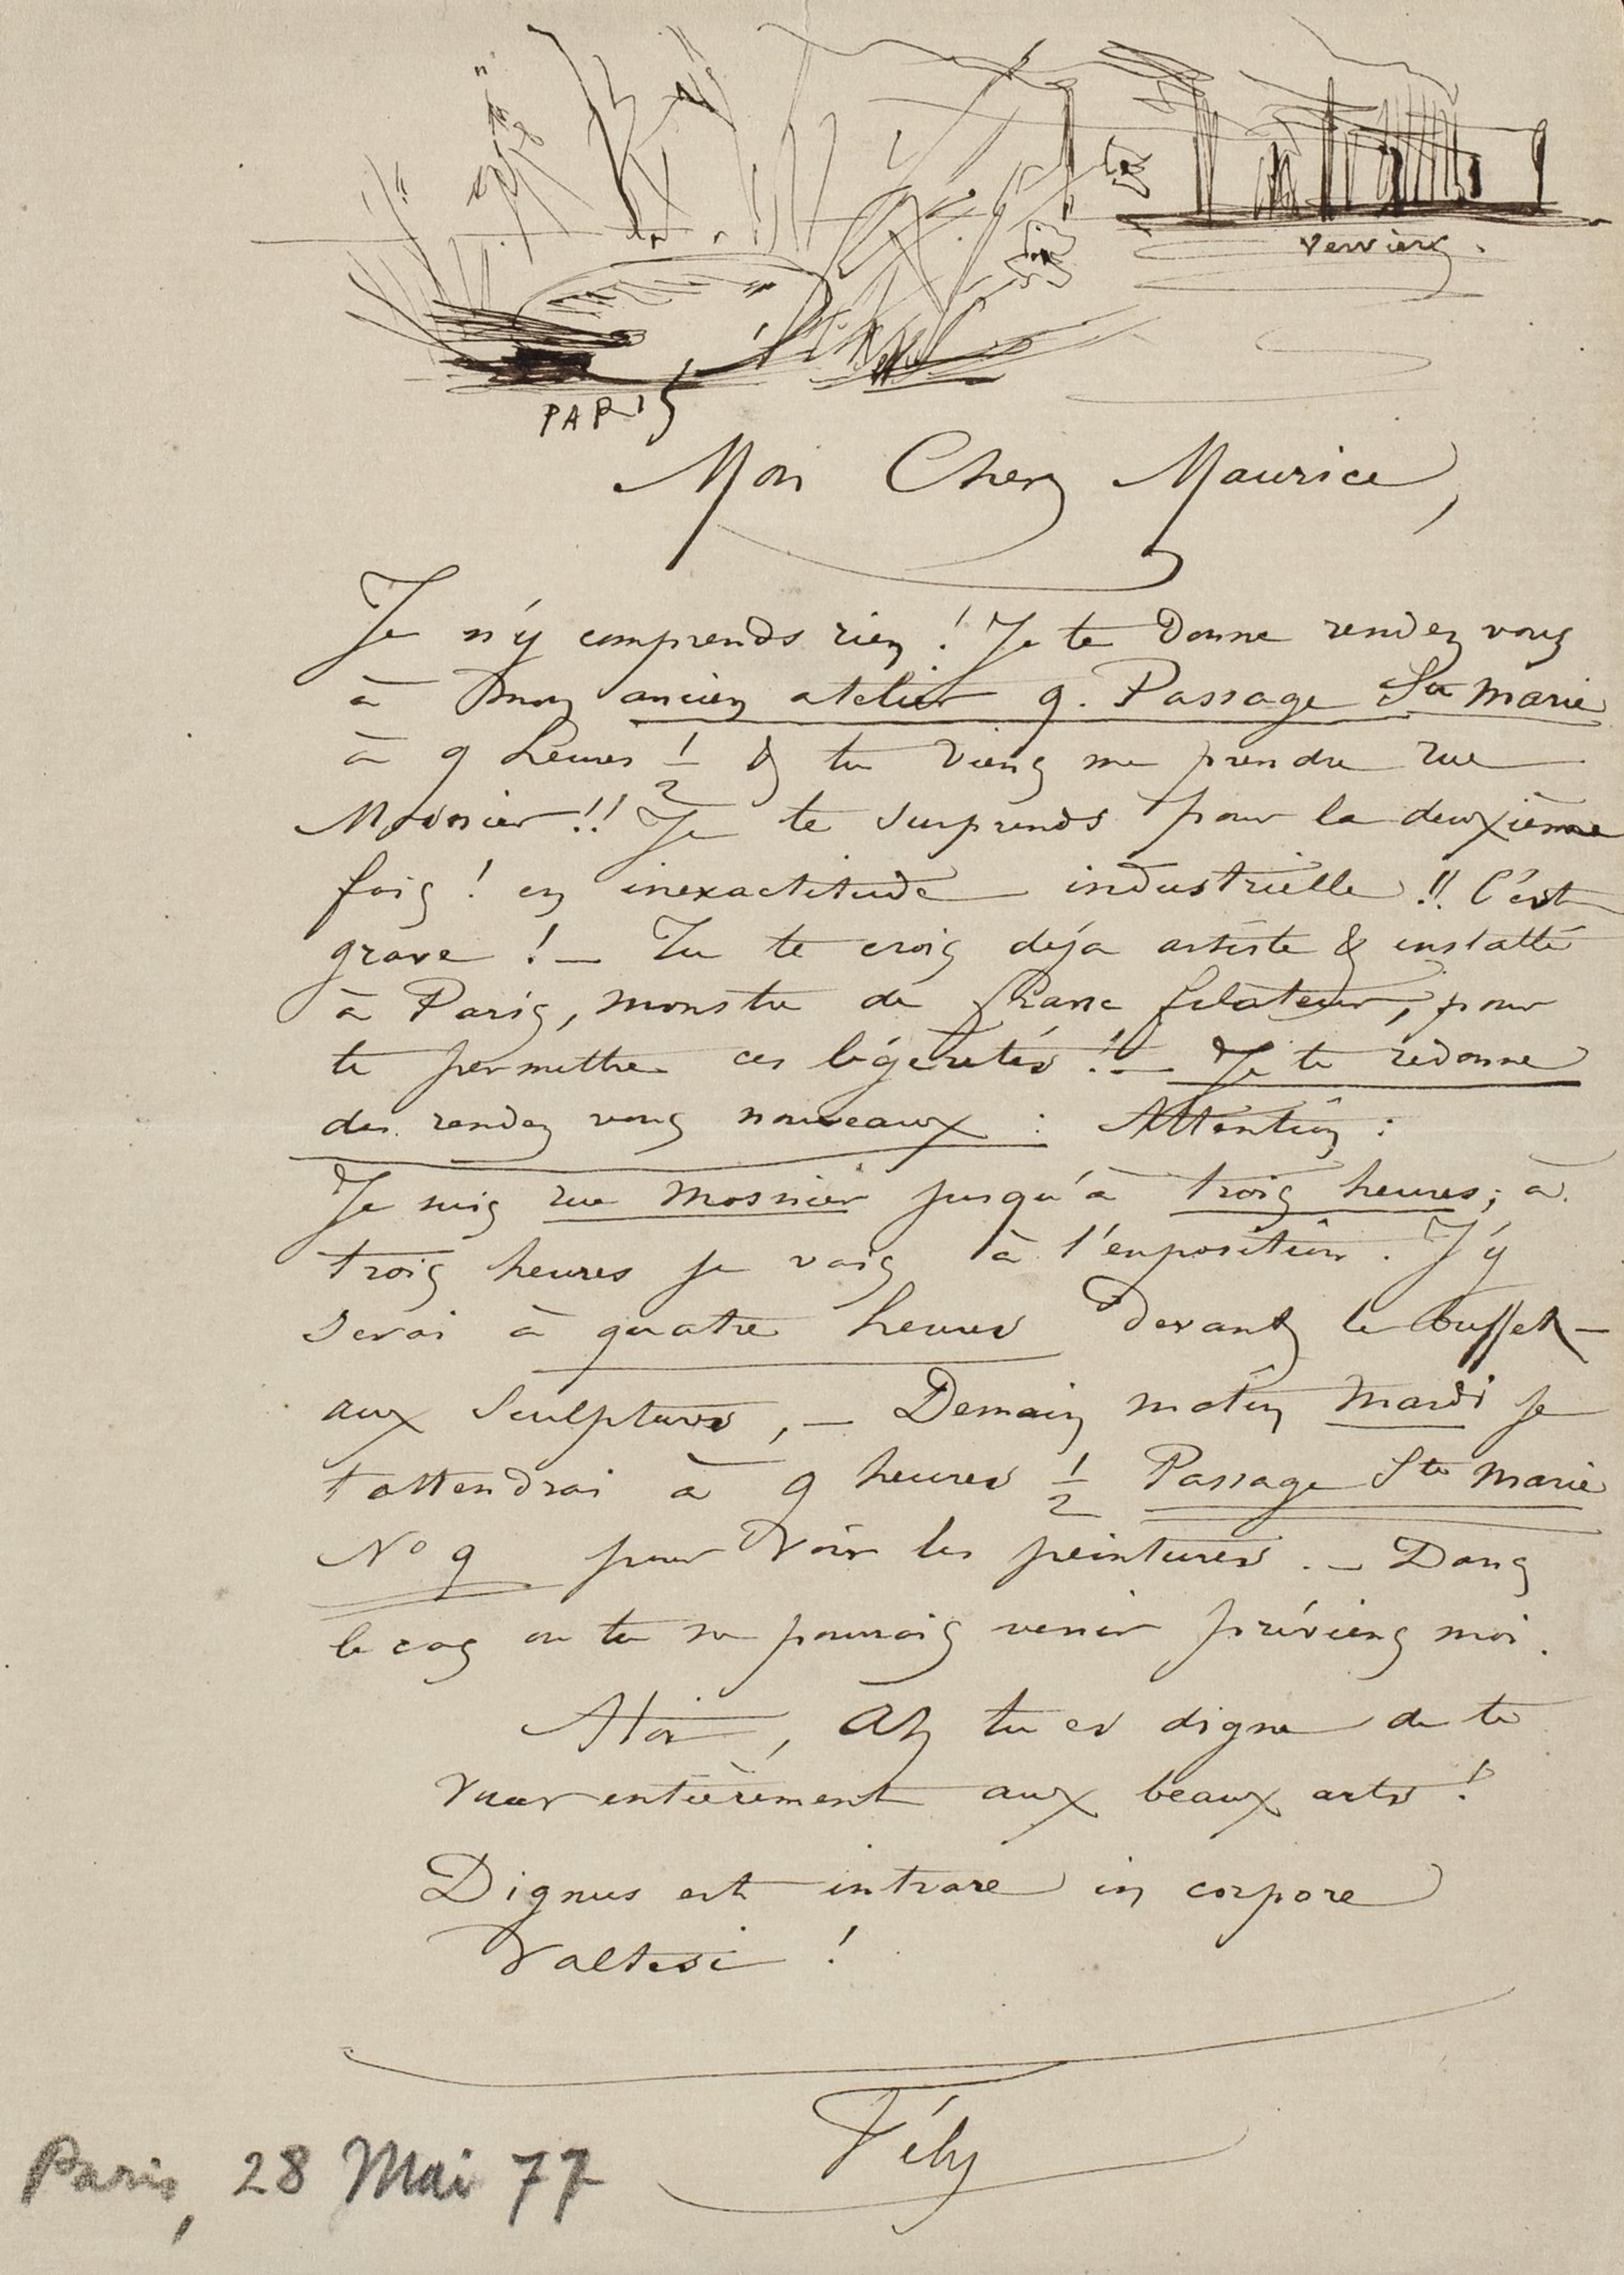 Verviers.
PARIS
Mon Cher Maurice,
Je n'y comprends rien ! Je te donne rendez vous
à mon ancien atelier 9. Passage Ste Marie
à 9 heures 1/2 & tu viens me prendre rue
Mosnier !! Je te surprends pour la deuxième
fois ! en inexactitude industrielle !! C'est
grave ! — Tu te crois déja artiste & installé
à Paris, monstre de franc filateur, pour
te permettre ces légèretés !! — Je te redonne
des rendez vous nouveaux : Attention :
Je suis rue Mosnier jusqu'à trois heures ; à
trois heures je vais à l'exposition. J'y
serai à quatre heures devant le buffet —
aux sculptures, — Demain matin mardi je
t'attendrai à 9 heures 1/2 Passage Ste Marie
No 9 pour voir les peintures. — Dans
le cas ou tu ne pourrais venir préviens moi.
À toi, Ah tu es digne de te
vouer entièrement aux beaux arts !
Dignus est intrare in corpore
Valtesi !
Fély
Paris, 28 Mai 77